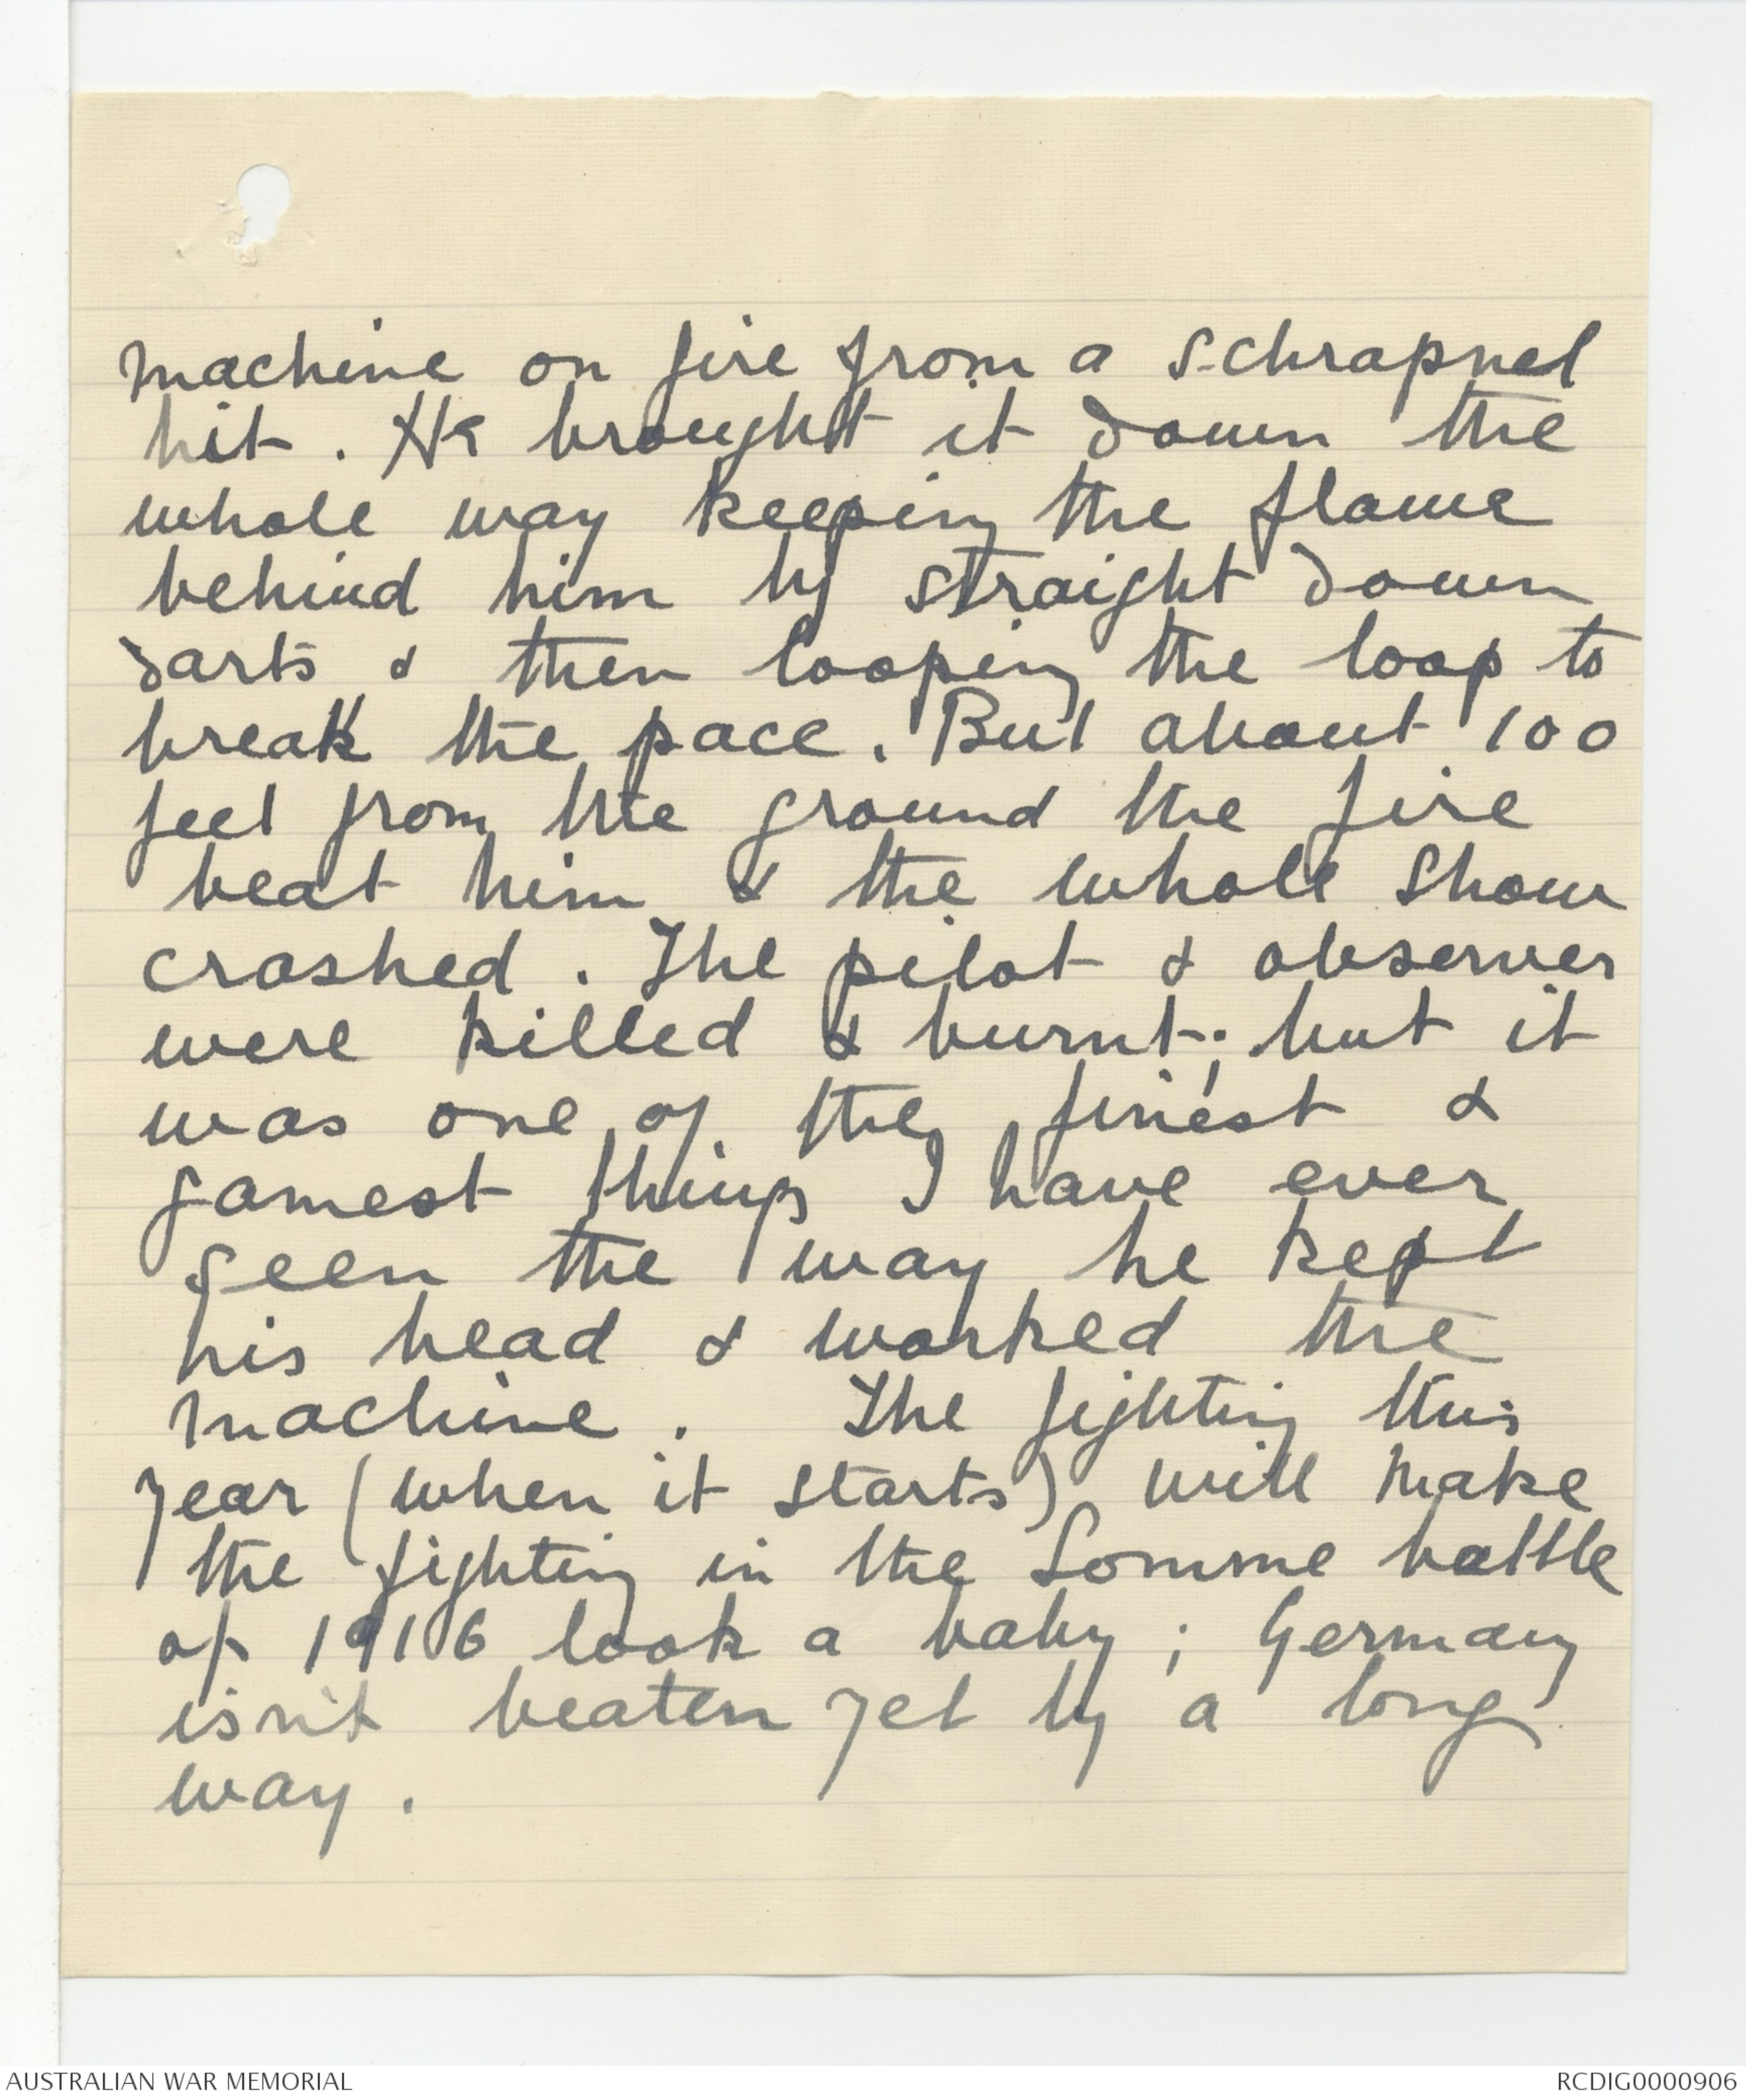 machine on fire from a schrapnel
hit. He brought it down the
whole way keeping the flame
behind him by straight down
darts & then looping the loop to
break the pace. But about 100
feet from the ground the fire
beat him & the whole show
crashed. The pilot & observer
were killed & burnt; but it
was one of the finest &
gamest things I have ever
seen the way he kept
his head & worked the
machine. The fighting this
year (when it starts) will make
the fighting in the Somme battle
of 1916 look a baby; Germany
isn't beaten yet by a long
way.
AUSTRALIAN WAR MEMORIAL
RCDIG0000906